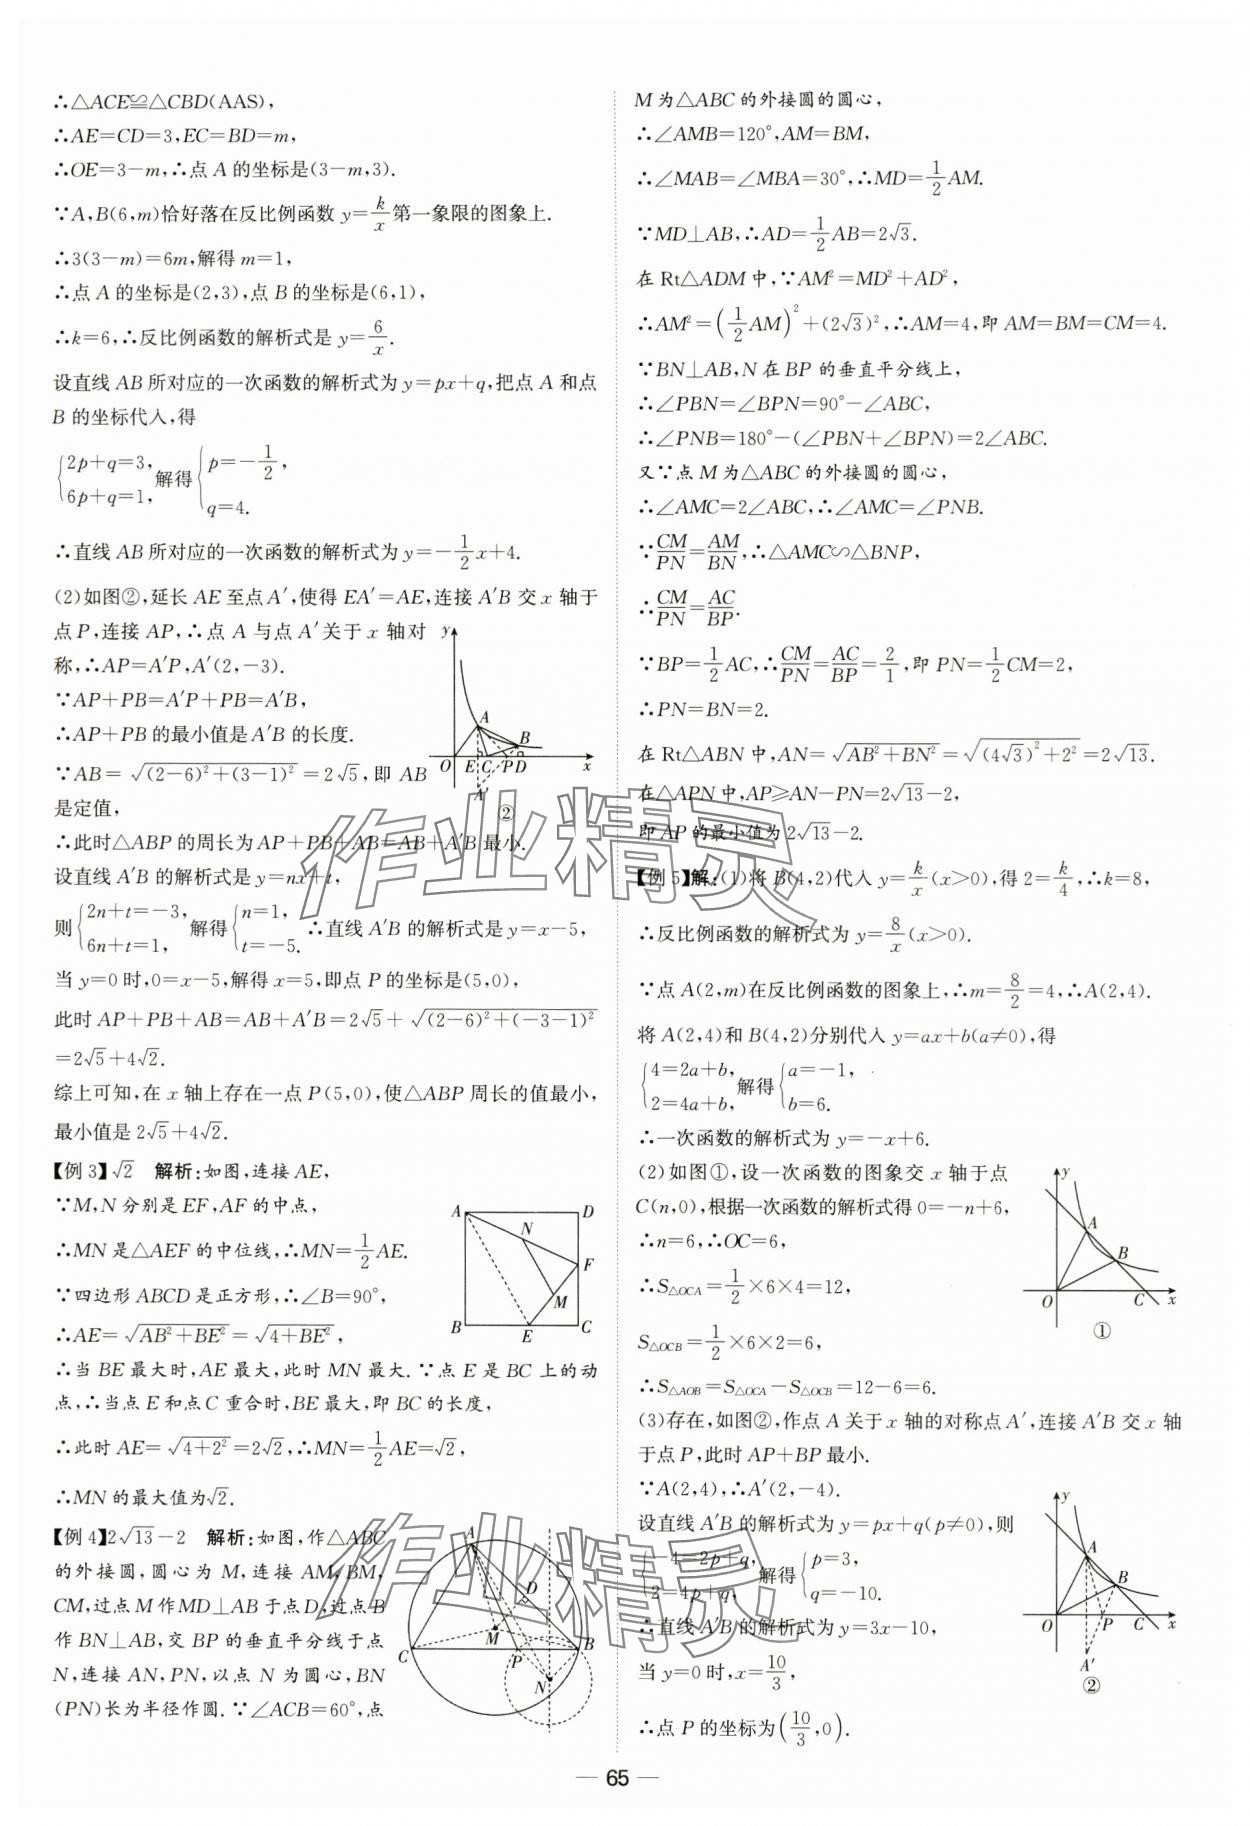 ∴△ACE≌△CBD(AAS),
∴AE=CD=3,EC=BD=m,
∴OE=3-m,∴点 A 的坐标是(3-m,3).
∵A,B(6,m)恰好落在反比例函数 y=k/x 第一象限的图象上.
∴3(3-m)=6m,解得 m=1,
∴点 A 的坐标是(2,3),点 B 的坐标是(6,1),
∴k=6,∴反比例函数的解析式是 y=6/x.
设直线 AB 所对应的一次函数的解析式为 y=px+q,把点 A 和点
B 的坐标代入,得
{2p+q=3, 6p+q=1, 解得 {p=-1/2, q=4.
∴直线 AB 所对应的一次函数的解析式为 y=-1/2x+4.
(2)如图②,延长 AE 至点 A′,使得 EA′=AE,连接 A′B 交 x 轴于
点 P,连接 AP,∴点 A 与点 A′关于 x 轴对
称,∴AP=A′P,A′(2,-3).
∵AP+PB=A′P+PB=A′B,
∴AP+PB 的最小值是 A′B 的长度.
∵AB=√((2-6)²+(3-1)²)=2√5,即 AB
是定值,
∴此时△ABP 的周长为 AP+PB+AB=AB+A′B 最小.
设直线 A′B 的解析式是 y=nx+t,
则 {2n+t=-3, 6n+t=1, 解得 {n=1, t=-5. ∴直线 A′B 的解析式是 y=x-5,
当 y=0 时,0=x-5,解得 x=5,即点 P 的坐标是(5,0),
此时 AP+PB+AB=AB+A′B=2√5+√((2-6)²+(-3-1)²)
=2√5+4√2.
综上可知,在 x 轴上存在一点 P(5,0),使△ABP 周长的值最小,
最小值是 2√5+4√2.
y
A
B
O E C P D x
A′
②
【例 3】√2 解析:如图,连接 AE,
∵M,N 分别是 EF,AF 的中点,
∴MN 是△AEF 的中位线,∴MN=1/2AE.
∵四边形 ABCD 是正方形,∴∠B=90°,
∴AE=√(AB²+BE²)=√(4+BE²),
∴当 BE 最大时,AE 最大,此时 MN 最大.∵点 E 是 BC 上的动
点,∴当点 E 和点 C 重合时,BE 最大,即 BC 的长度,
∴此时 AE=√(4+2²)=2√2,∴MN=1/2AE=√2,
∴MN 的最大值为√2.
A D
N
F
M
B E C
【例 4】2√13-2 解析:如图,作△ABC
的外接圆,圆心为 M,连接 AM,BM,
CM,过点 M 作 MD⊥AB 于点 D,过点 B
作 BN⊥AB,交 BP 的垂直平分线于点
N,连接 AN,PN,以点 N 为圆心,BN
(PN)长为半径作圆.∵∠ACB=60°,点
A
D
M
C P B
N
M 为△ABC 的外接圆的圆心,
∴∠AMB=120°,AM=BM,
∴∠MAB=∠MBA=30°,∴MD=1/2AM.
∵MD⊥AB,∴AD=1/2AB=2√3.
在 Rt△ADM 中,∵AM²=MD²+AD²,
∴AM²=(1/2AM)²+(2√3)²,∴AM=4,即 AM=BM=CM=4.
∵BN⊥AB,N 在 BP 的垂直平分线上,
∴∠PBN=∠BPN=90°-∠ABC,
∴∠PNB=180°-(∠PBN+∠BPN)=2∠ABC.
又∵点 M 为△ABC 的外接圆的圆心,
∴∠AMC=2∠ABC,∴∠AMC=∠PNB.
∵CM/PN=AM/BN,∴△AMC∽△BNP,
∴CM/PN=AC/BP.
∵BP=1/2AC,∴CM/PN=AC/BP=2/1,即 PN=1/2CM=2,
∴PN=BN=2.
在 Rt△ABN 中,AN=√(AB²+BN²)=√((4√3)²+2²)=2√13.
在△APN 中,AP≥AN-PN=2√13-2,
即 AP 的最小值为 2√13-2.
【例 5】解:(1)将 B(4,2)代入 y=k/x(x>0),得 2=k/4,∴k=8,
∴反比例函数的解析式为 y=8/x(x>0).
∵点 A(2,m)在反比例函数的图象上,∴m=8/2=4,∴A(2,4).
将 A(2,4)和 B(4,2)分别代入 y=ax+b(a≠0),得
{4=2a+b, 2=4a+b, 解得 {a=-1, b=6.
∴一次函数的解析式为 y=-x+6.
(2)如图①,设一次函数的图象交 x 轴于点
C(n,0),根据一次函数的解析式得 0=-n+6,
∴n=6,∴OC=6,
∴S△OCA=1/2×6×4=12,
S△OCB=1/2×6×2=6,
∴S△AOB=S△OCA-S△OCB=12-6=6.
y
A
B
O C x
①
(3)存在,如图②,作点 A 关于 x 轴的对称点 A′,连接 A′B 交 x 轴
于点 P,此时 AP+BP 最小.
∵A(2,4),∴A′(2,-4).
设直线 A′B 的解析式为 y=px+q(p≠0),则
{-4=2p+q, 2=4p+q, 解得 {p=3, q=-10.
∴直线 A′B 的解析式为 y=3x-10,
当 y=0 时,x=10/3,
∴点 P 的坐标为(10/3,0).
y
A
B
O P C x
A′
②
作业精灵
作业精灵
— 65 —